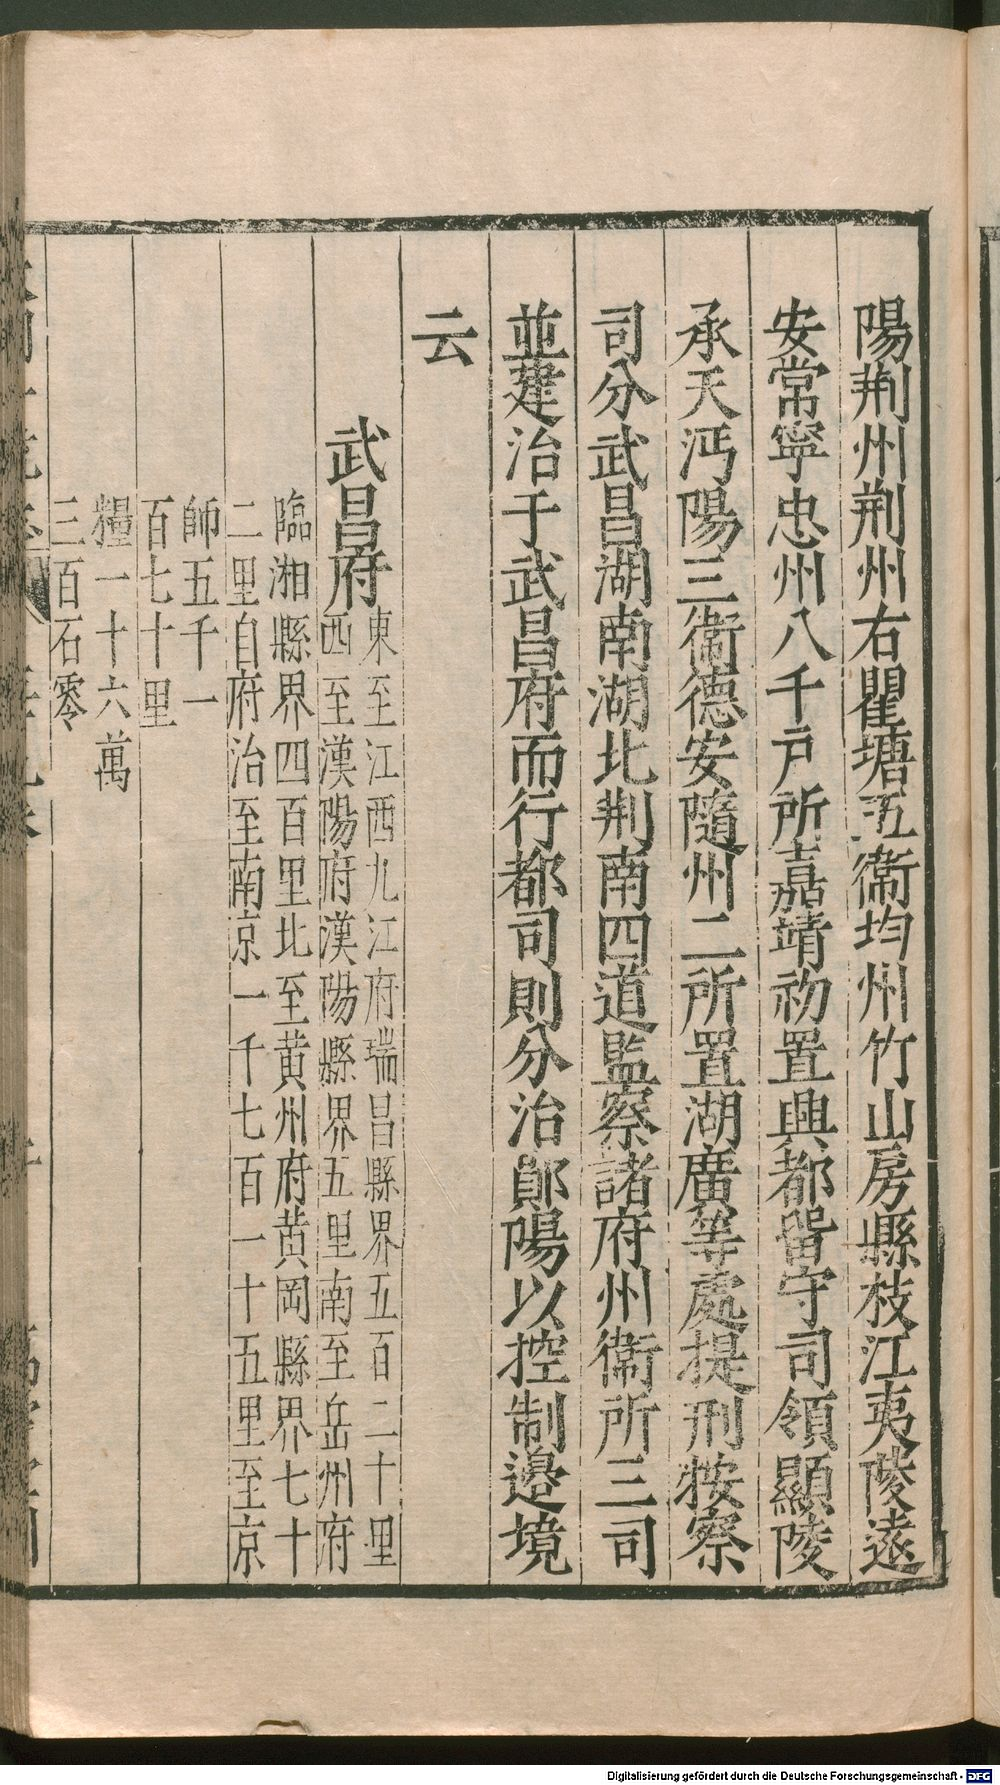 陽荆州荆州右瞿塘五衞均州竹山房縣枝江夷陵遠
安常寧忠州八千戶所嘉靖初置興都留守司領顯陵
承天沔陽三衞德安隨州二所置湖廣等處提刑按察
司分武昌湖南湖北荆南四道監察諸府州衞所三司
並建治于武昌府而行都司則分治鄖陽以控制邉境
云
武昌府
東至江西九江府瑞昌縣界五百二十里
西至漢陽府漢陽縣界五里南至岳州府
臨湘縣界四百里北至黄州府黄岡縣界七十
二里自府治至南京一千七百一十五里至京
師五千一
百七十里
糧一十六萬
三百石零
Digitalisierung gefördert durch die Deutsche Forschungsgemeinschaft - DFG